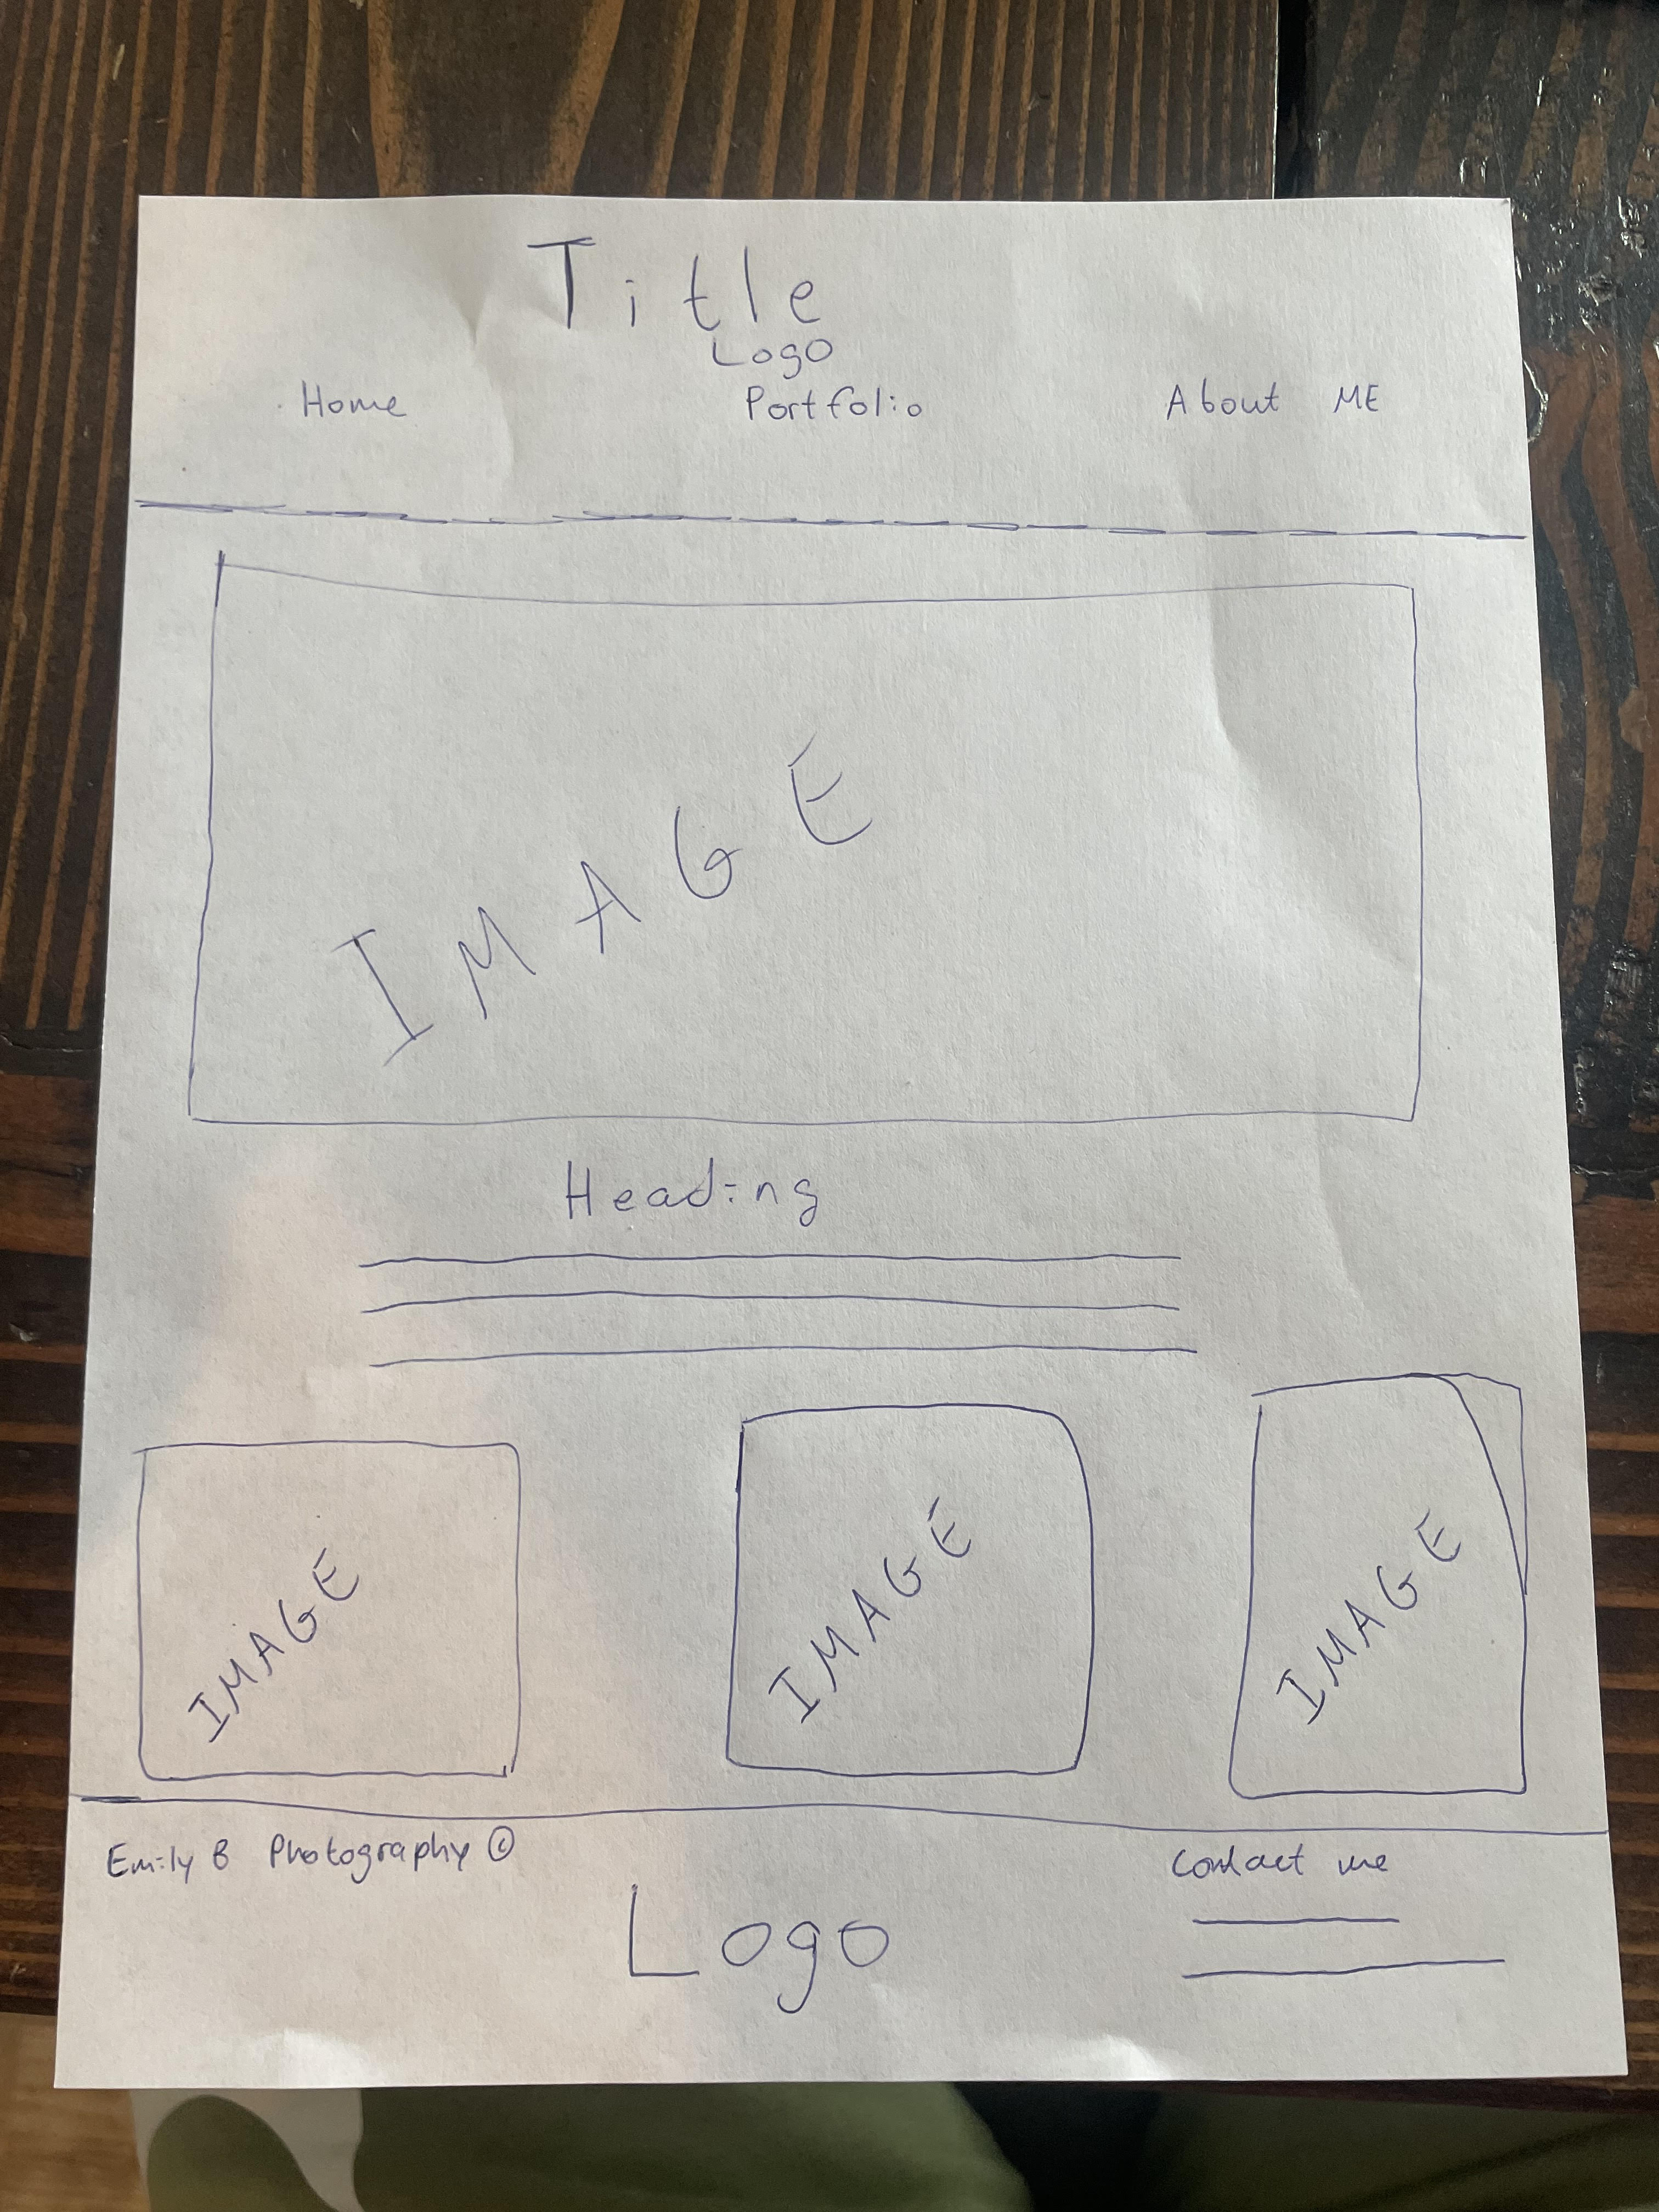 Title
Logo
Home Portfolio About ME
IMAGE
Heading
IMAGE IMAGE IMAGE
Emily B Photography © Contact me
Logo